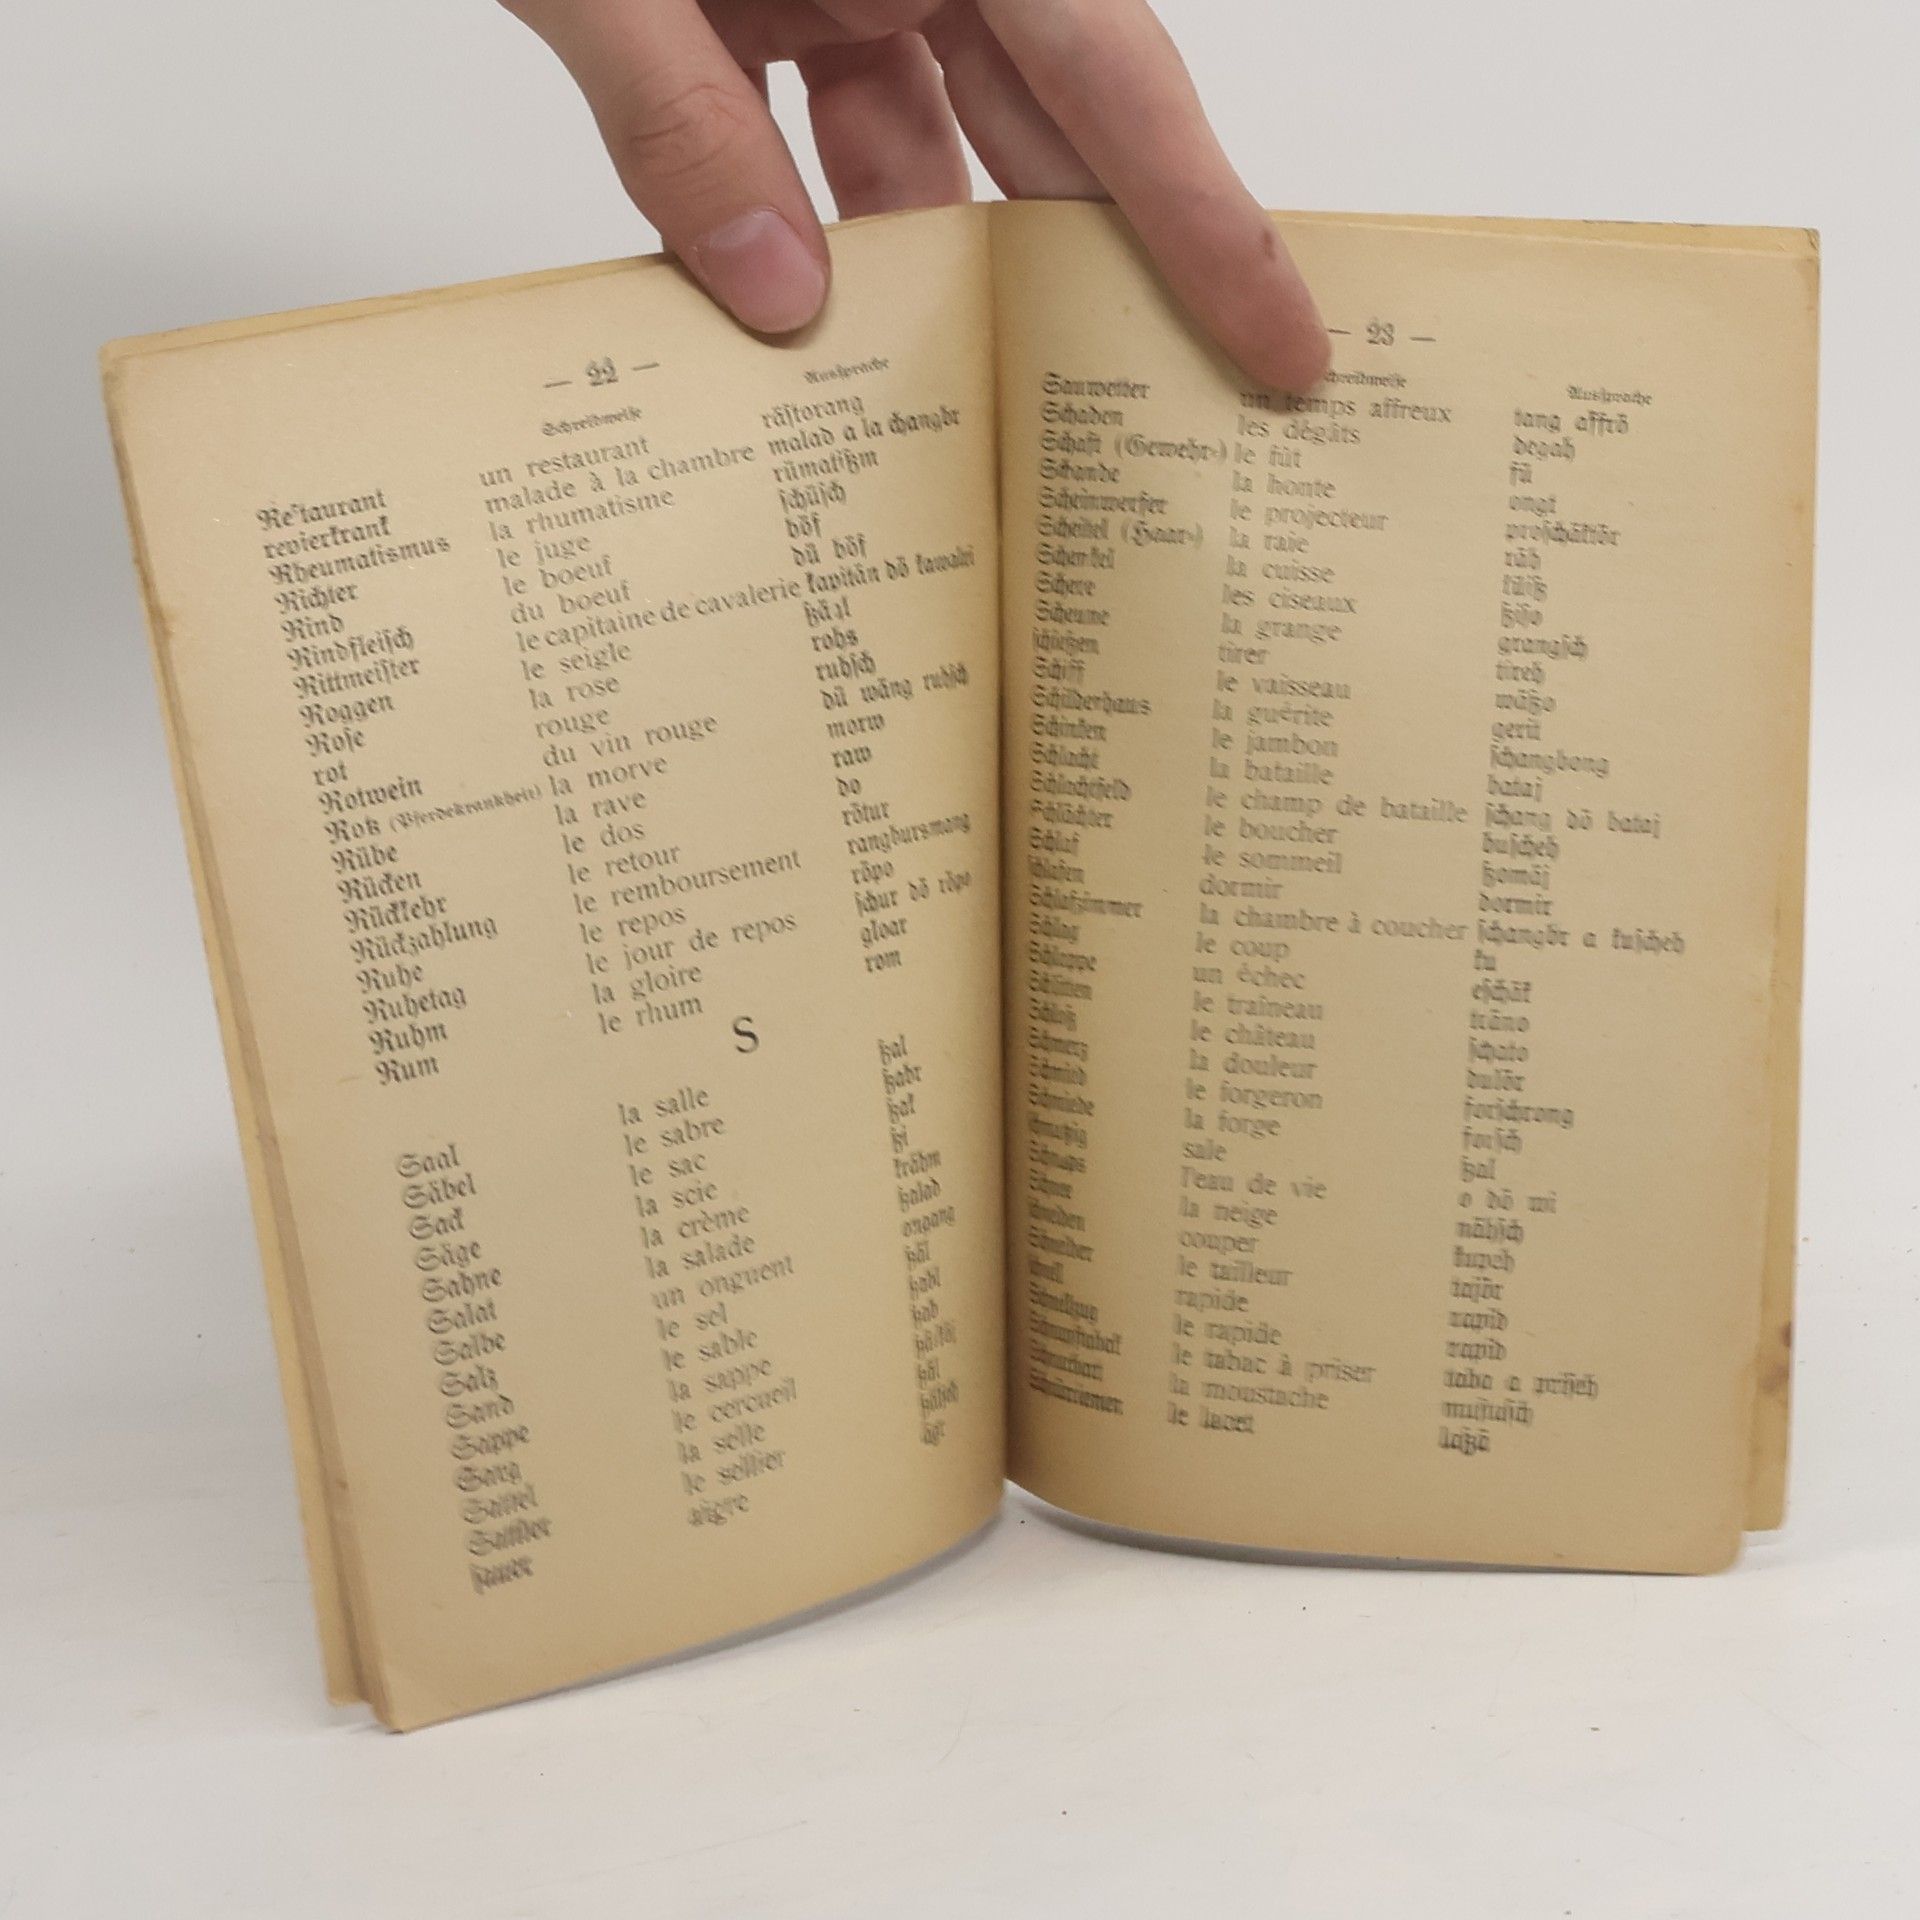 — 22 —
Schreibweise Aussprache
Restaurant un restaurant rästorang
revierkrank malade à la chambre malad a la changbr
Rheumatismus la rhumatisme rümatißm
Richter le juge schüsch
Rind le boeuf böf
Rindfleisch du boeuf dü böf
Rittmeister le capitaine de cavalerie kapitän dö kawalri
Roggen le seigle
Rose la rose rohs
rot rouge ruhsch
Rotwein du vin rouge dü wäng ruhsch
Rotz (Pferdekrankheit) la morve morw
Rübe la rave raw
Rücken le dos do
Rückkehr le retour rötur
Rückzahlung le remboursement rangbursmang
Ruhe le repos röpo
Ruhetag le jour de repos schur dö röpo
Ruhm la gloire gloar
Rum le rhum rom
S
Saal la salle ßal
Säbel le sabre ßabr
Sack le sac ßak
Säge la scie ßi
Sahne la crème krähm
Salat la salade ßalad
Salbe un onguent ongang
Salz le sel ßäl
Sand le sable ßabl
Sappe la sappe ßap
Sarg le cercueil
Sattel la selle ßäl
Sattler le sellier
sauer aigre ägr
— 23 —
Schreibweise Aussprache
Sauwetter un temps affreux tang affrö
Schaden les dégâts degah
Schaft (Gewehr-) le fût fü
Schande la honte ongt
Scheinwerfer le projecteur proschäktör
Scheitel (Haar-) la raie räh
Schenkel la cuisse küiß
Schere les ciseaux ßiso
Scheune la grange grangsch
schießen tirer tireh
Schiff le vaisseau wäßo
Schilderhaus la guérite gerit
Schinken le jambon schangbong
Schlacht la bataille bataj
Schlachtfeld le champ de bataille schang dö bataj
Schlächter le boucher buscheh
Schlaf le sommeil ßomäj
schlafen dormir dormir
Schlafzimmer la chambre à coucher schangbr a kuscheh
Schlag le coup ku
Schlappe un échec eschäk
Schlitten le traîneau träno
Schloß le château schato
Schmerz la douleur dulör
Schmied le forgeron forschrong
Schmiede la forge forsch
schmutzig sale ßal
Schnaps l'eau de vie o dö wi
Schnee la neige nähsch
schneiden couper kupeh
Schneider le tailleur tajör
schnell rapide rapid
Schnellzug le rapide rapid
Schnupftabak le tabac à priser taba a priseh
Schnurrbart la moustache mustasch
Schnürriemen le lacet laßä